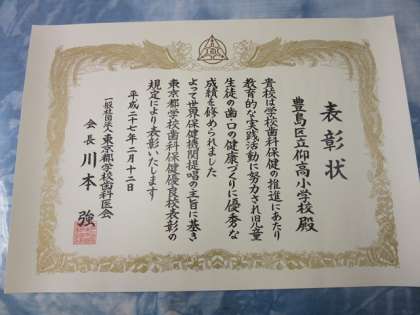 表彰状
豊島区立仰高小学校殿
貴校は学校歯科保健の推進にあたり
教育的な実践活動に努力され児童
生徒の歯・口の健康づくりに優秀な
成績を修められました
よって世界保健機関提唱の主旨に基き
東京都学校歯科保健優良校表彰の
規定により表彰いたします
平成二十七年二月十二日
一般社団法人東京都学校歯科医会
会長 川本 強